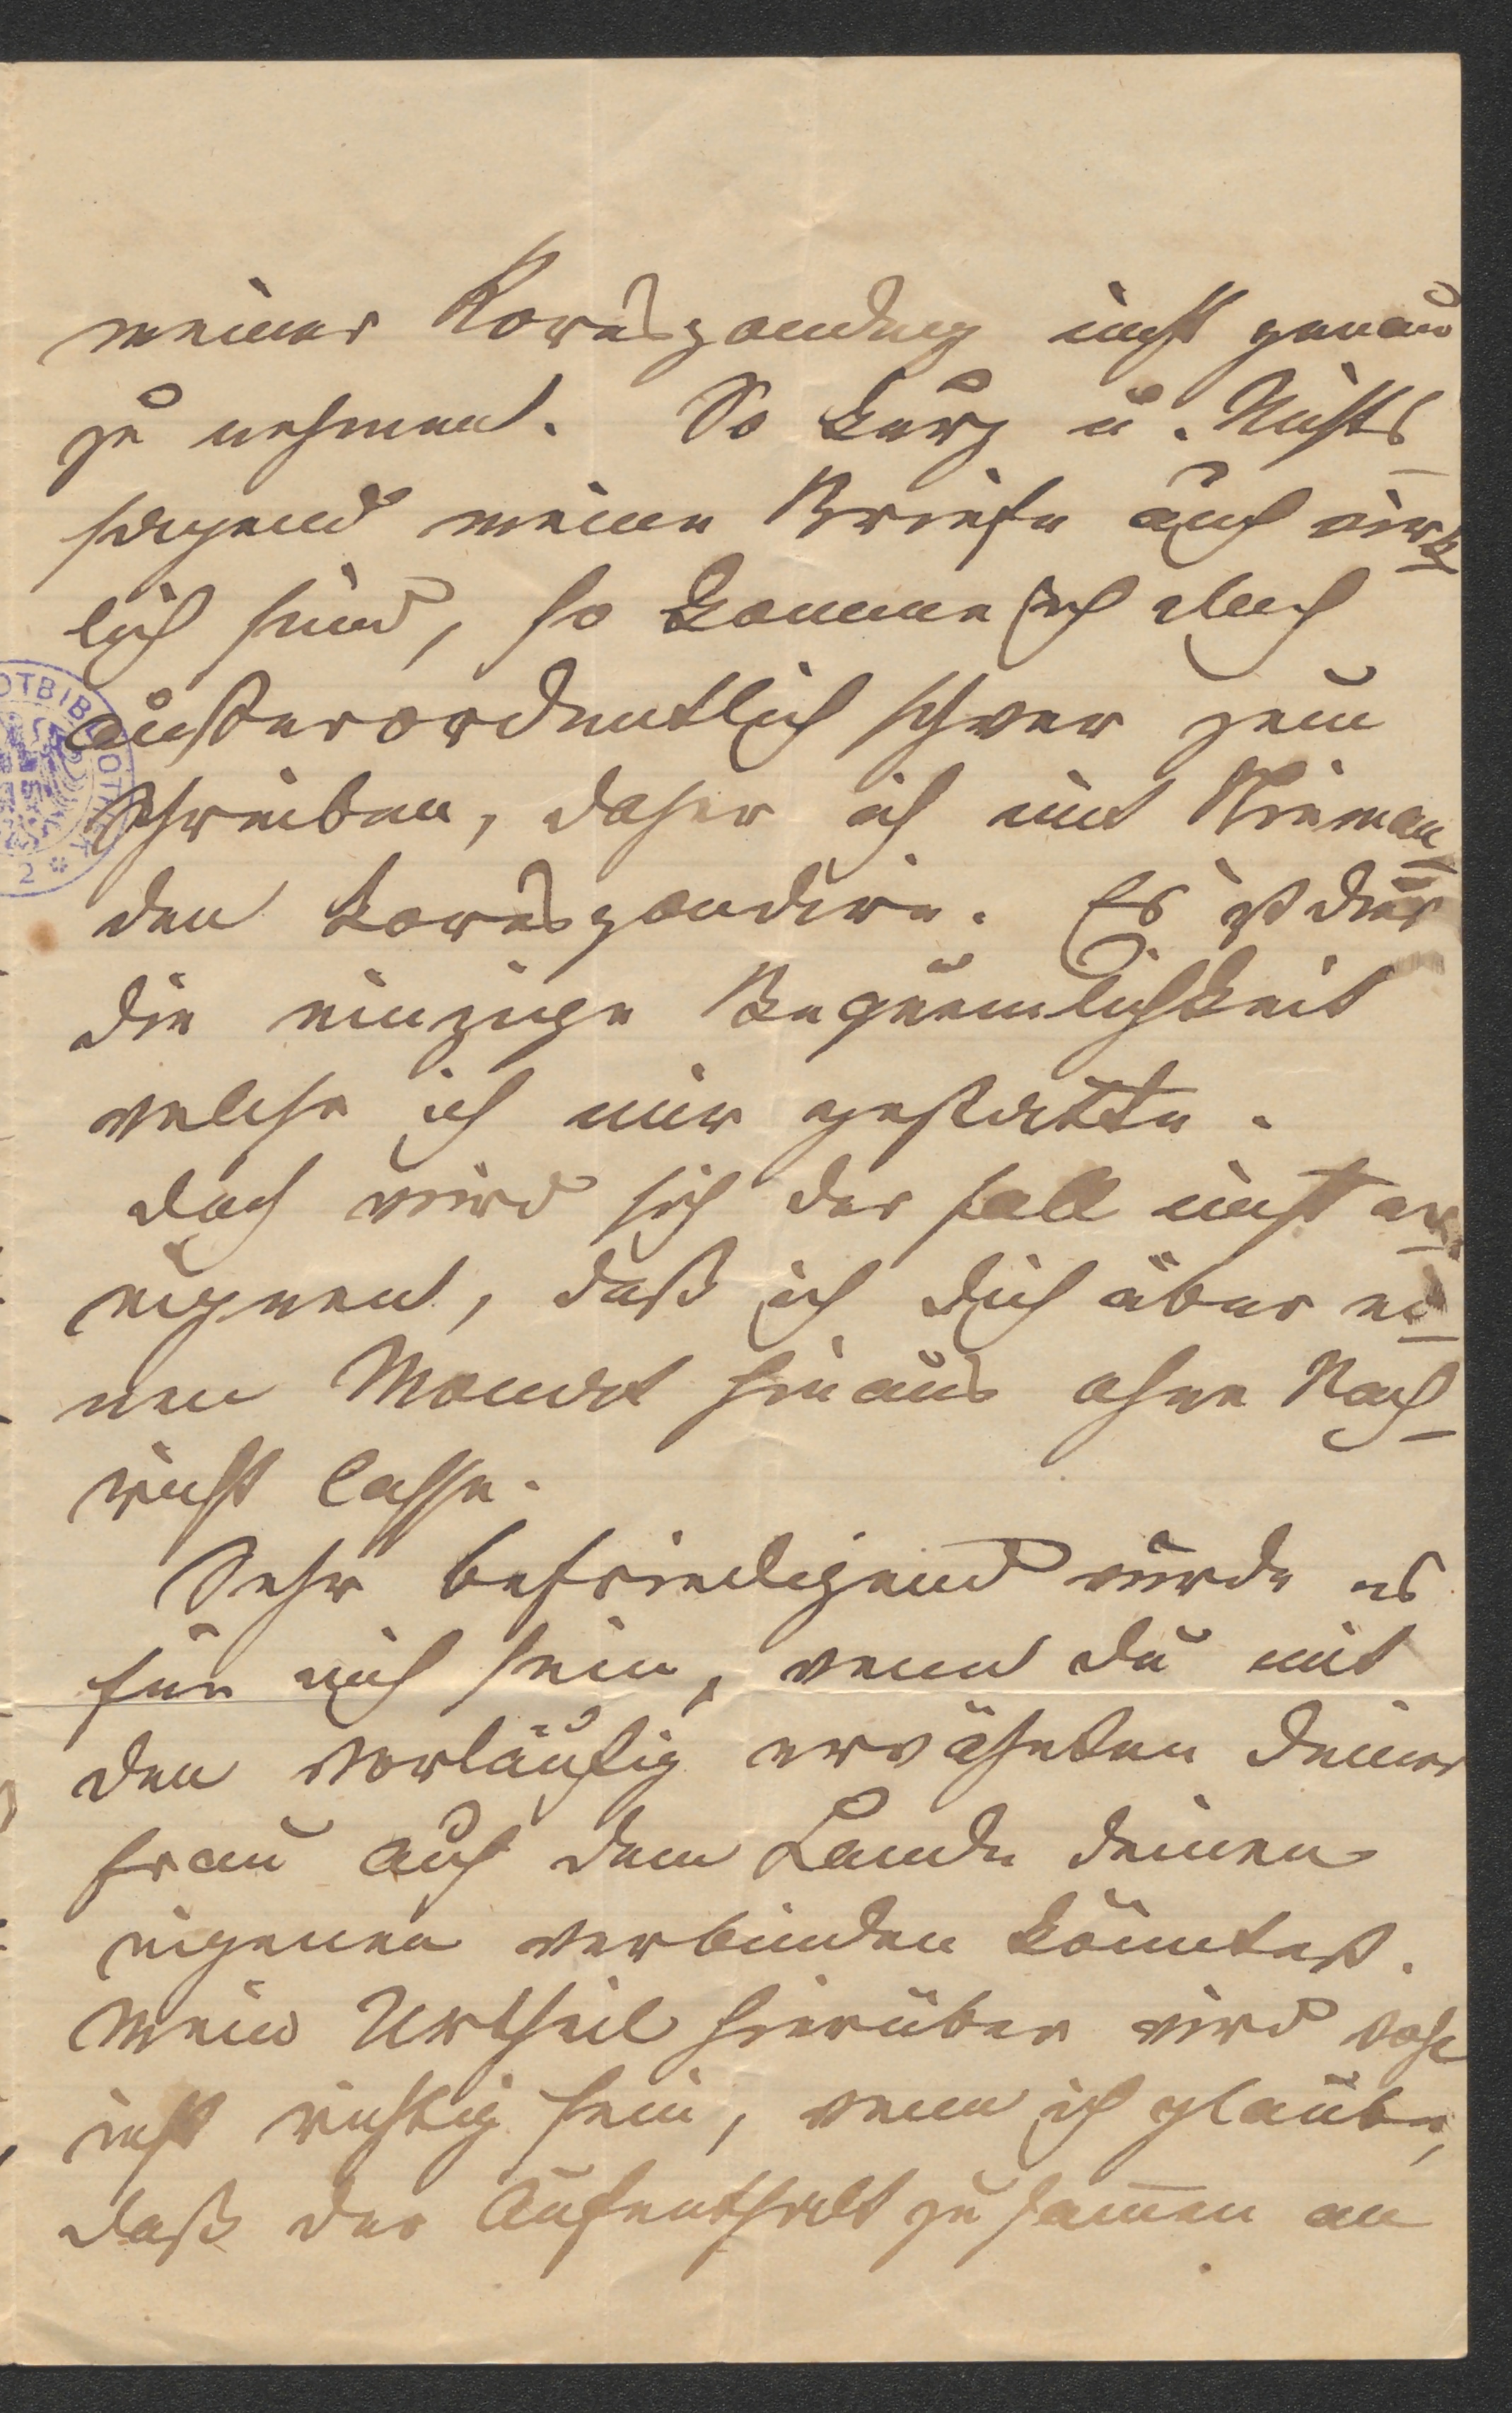 meiner Korespondenz nicht genau
zu nehmen. So kurz u. Nichts
sagend meine Briefe auch wirk
lich sind, so komme ich doch
außerordentlich schwer zum
Schreiben, daher ich mit Nieman
den korespondire. Es ist dies
die einzige Bequemlichkeit
welche ich mir gestatte.
doch wird sich der fall nicht er
eignen, daß ich dich über ei
nen Monat hinaus ohne Nach
richt lasse.
Sehr befriedigend würde es
für mich sein, wenn du mit
den vorläufig erwähnten deiner
frau auf dem Lande deinen
eigenen verbinden könntest.
Mein Urtheil hierüber wird wohl
nicht richtig sein, wenn ich glaube,
daß der Aufenthalt zusam̅en an